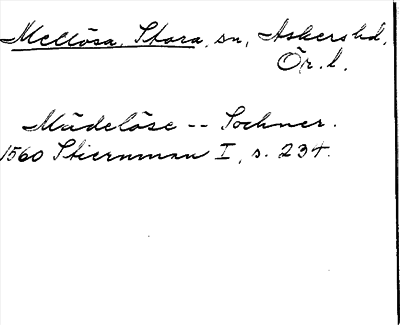 Mellösa, Stora, sn, Askers hd,
Ör. l.
Mädelöse -- Sochner.
1560 Stiernman I, s. 234.